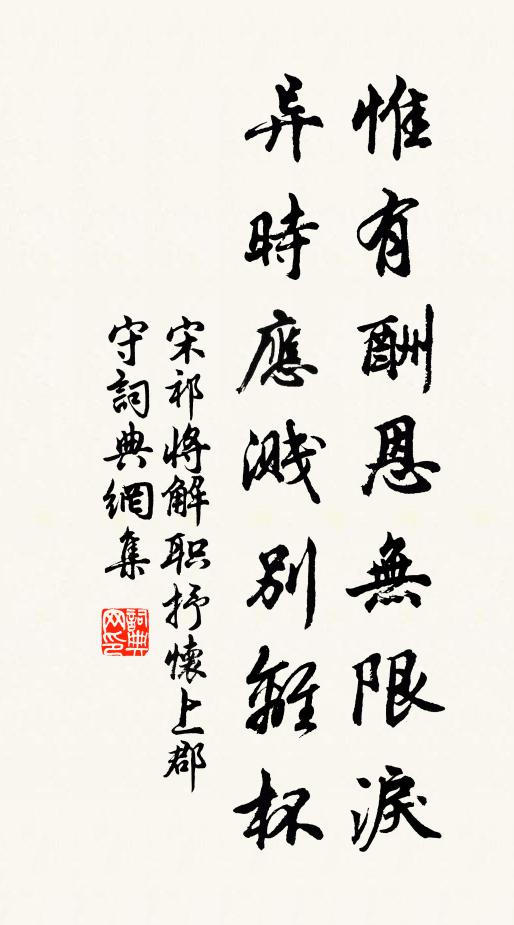 惟有酬恩無限淚
异時應濺別離杯
宋祁將解职抒懷上郡
守詞典網集
詞典網印